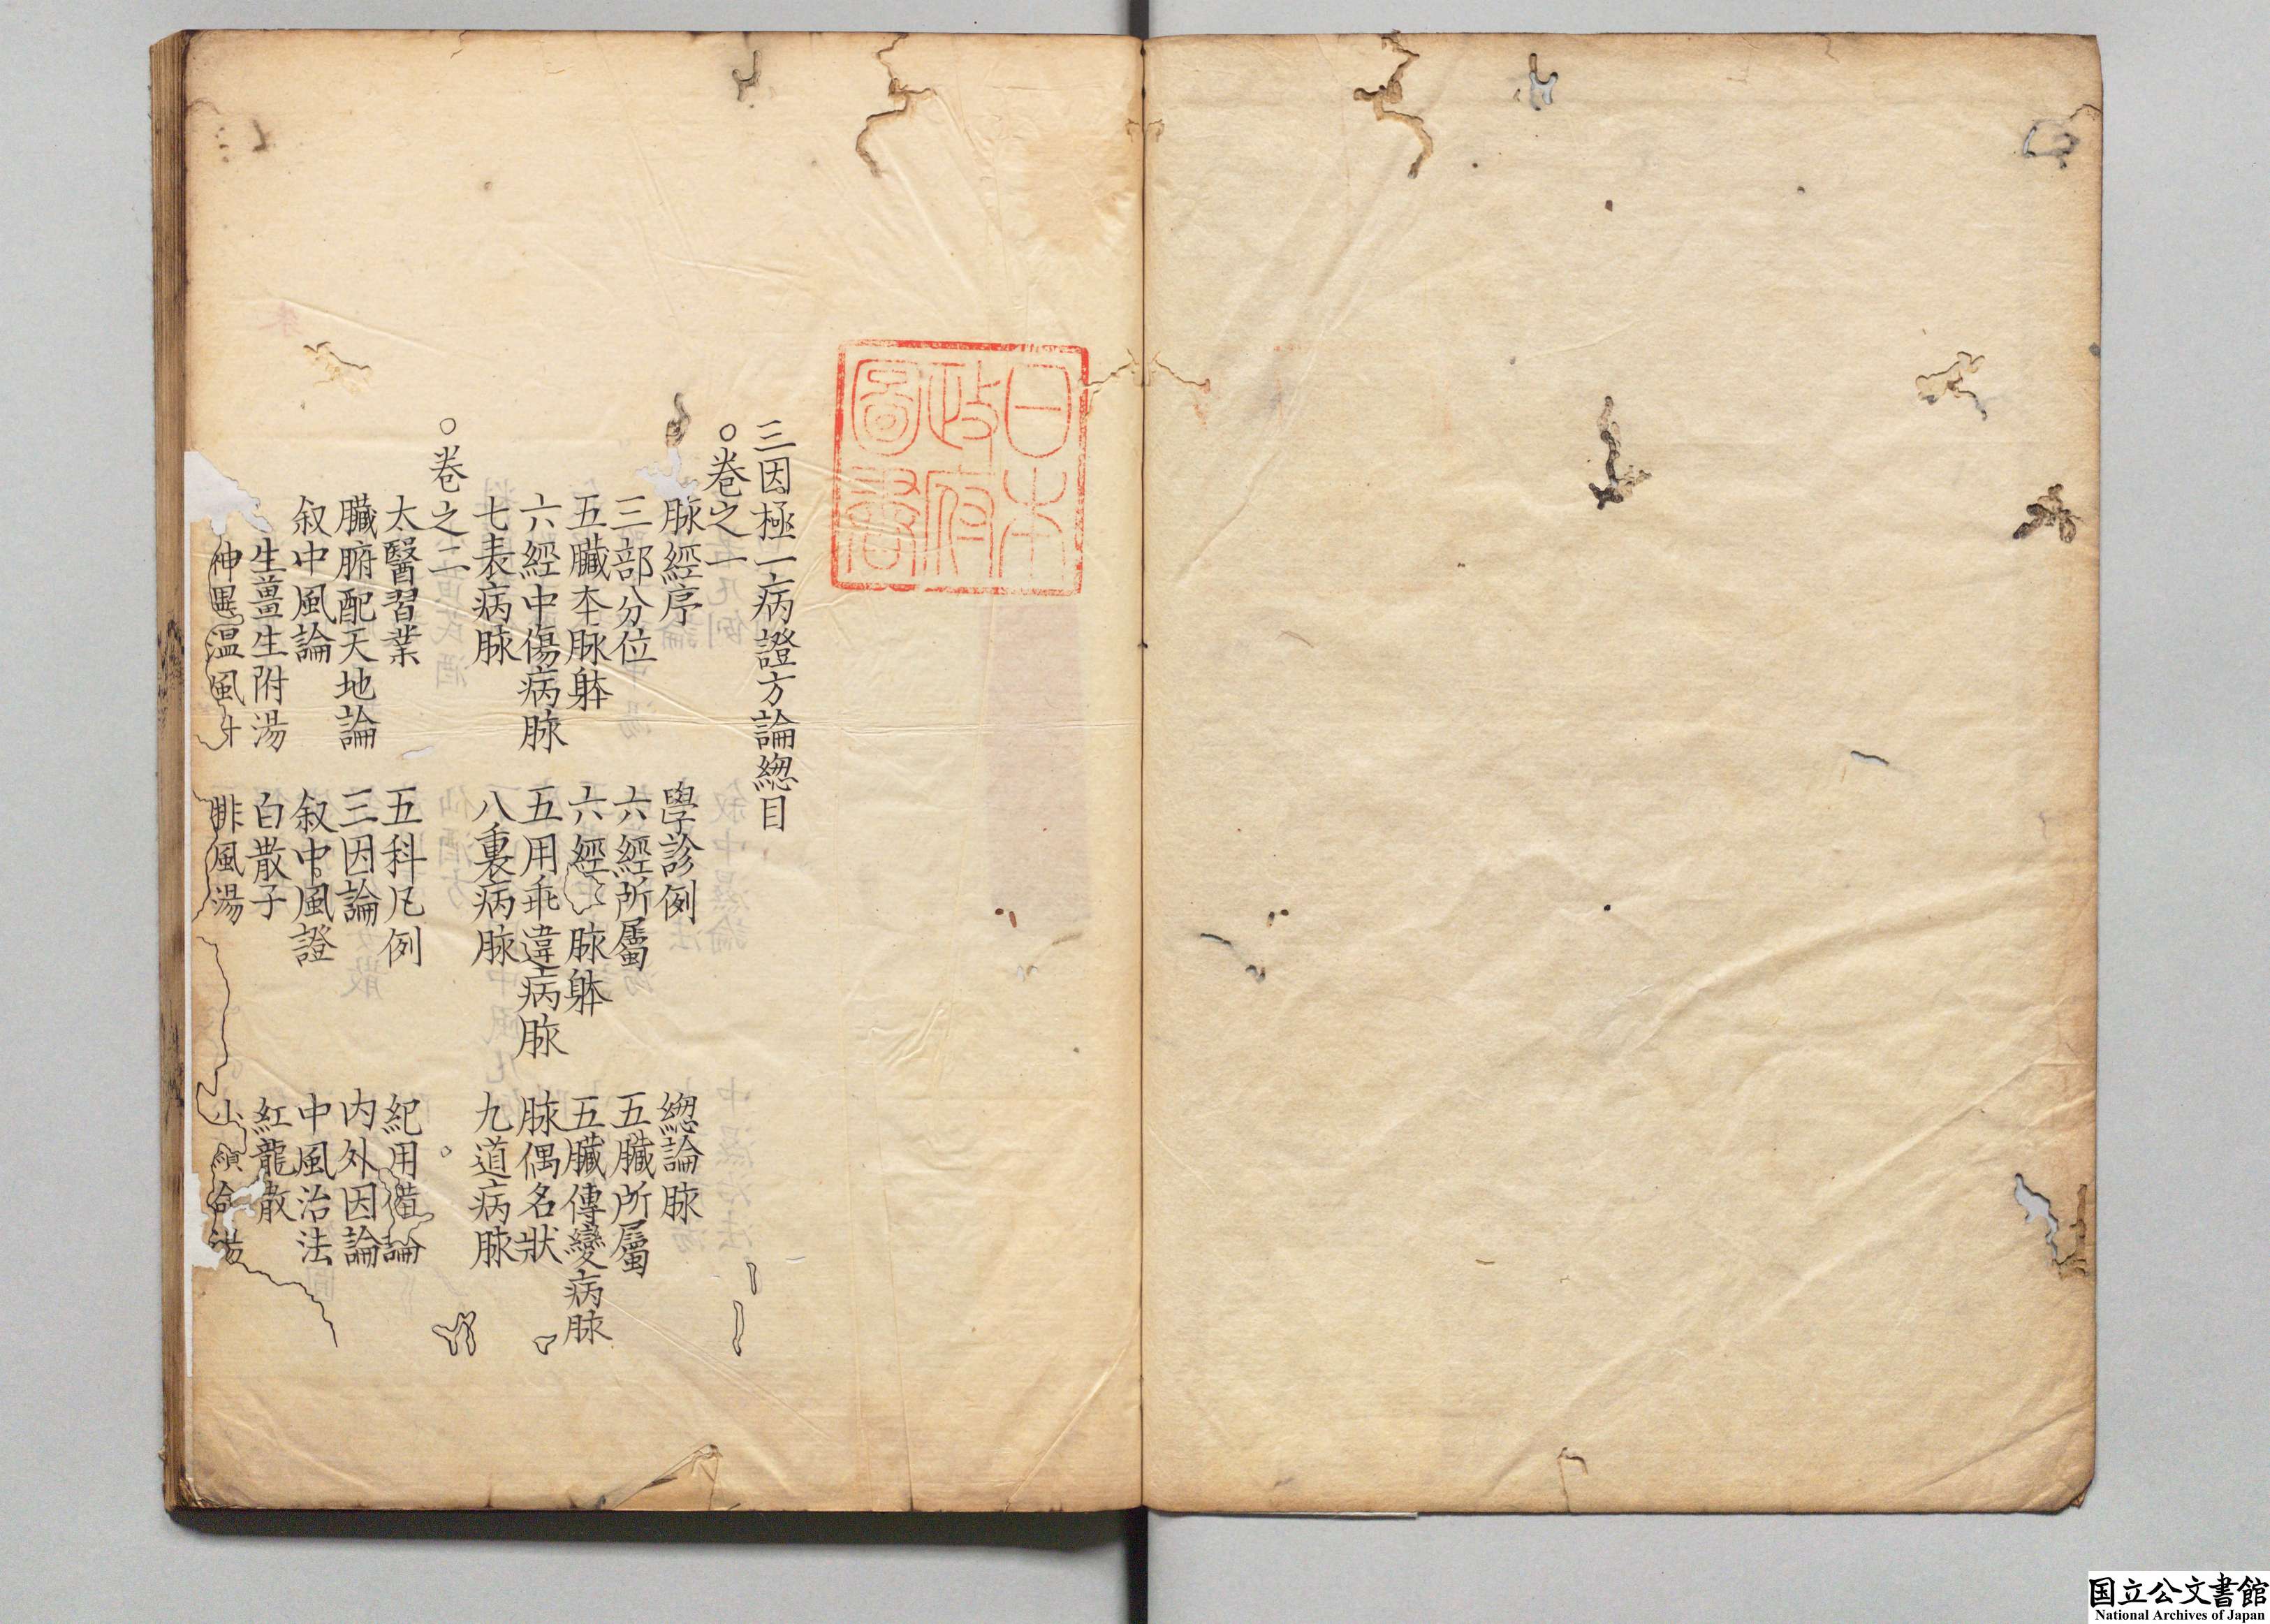 日本
政府
圖書
三因極一病證方論緫目
○卷之一
脉經序 學診例 緫論脉
三部分位 六經所屬 五臟所屬
五臟本脉躰 六經 脉躰 五臟傳變病脉
六經中傷病脉 五用乖違病脉 脉偶名狀
七表病脉 八裏病脉 九道病脉
○卷之二
太醫習業 五科凡例 紀用備論
臟腑配天地論 三因論 内外因論
叙中風論 叙中風證 中風治法
生薑生附湯 白散子 紅龍散
神異温風 排風湯 小續命湯
国立公文書館
National Archives of Japan